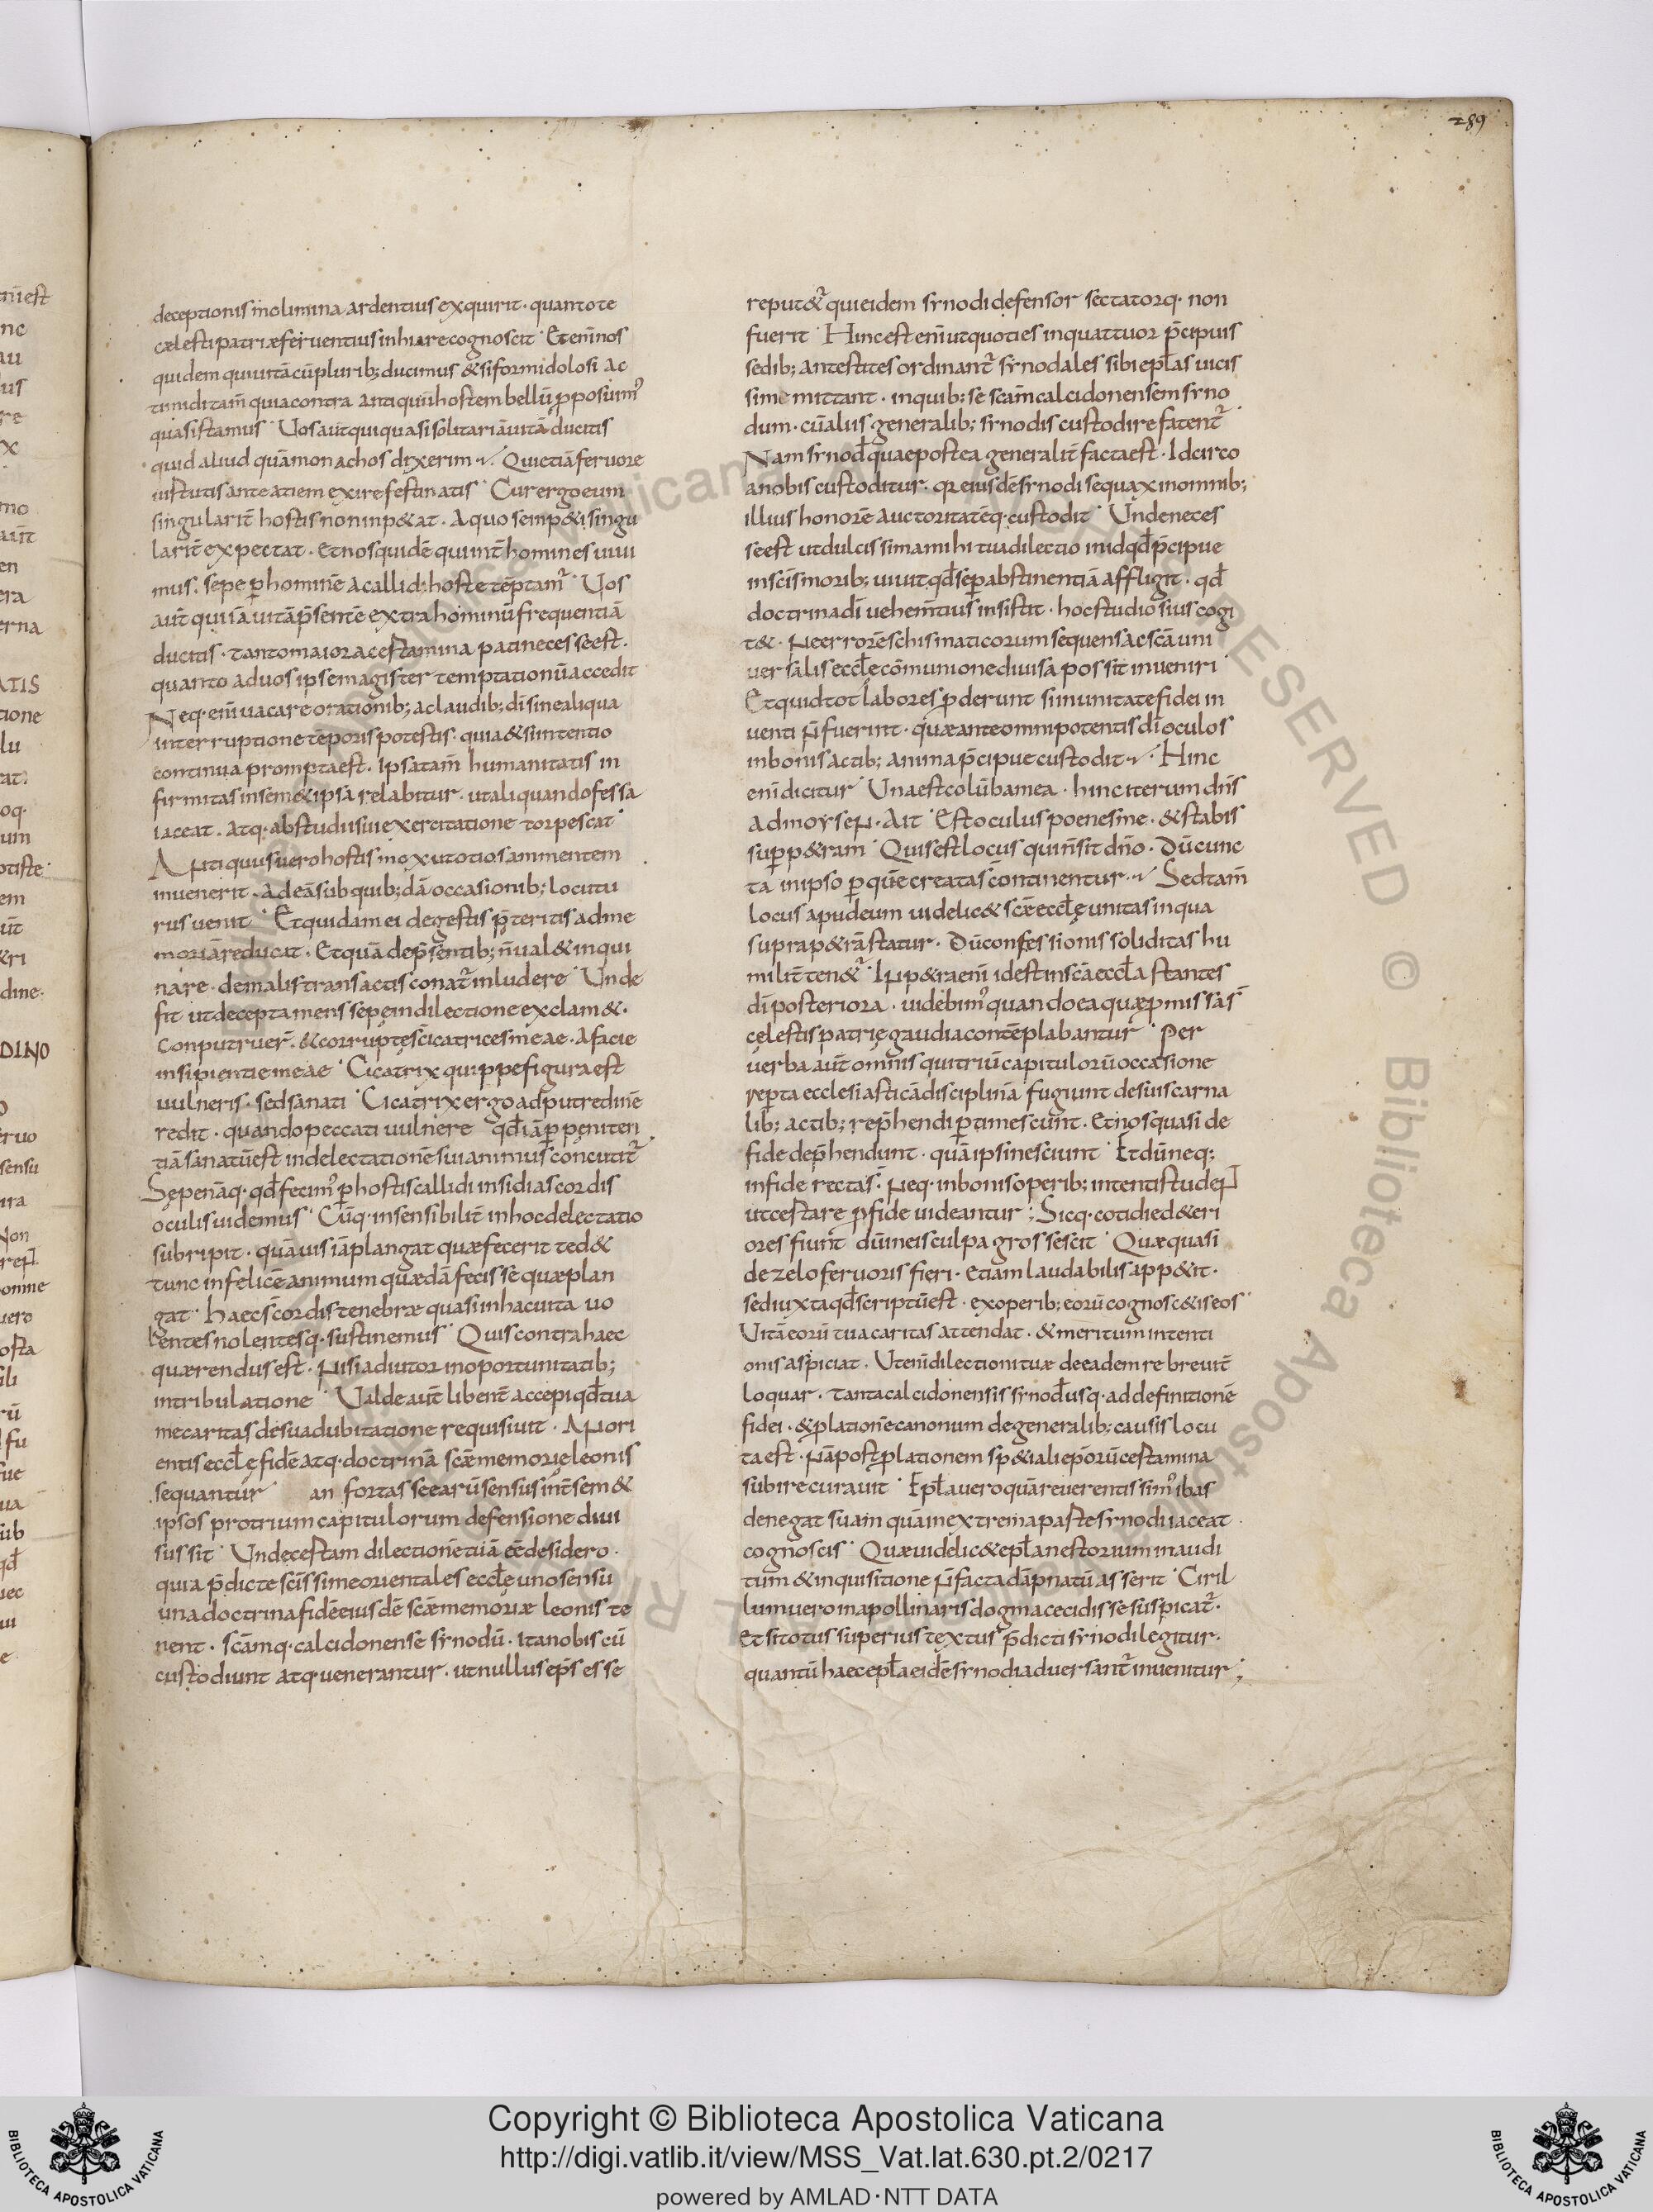 289
deceptionis molimina ardentius exquirit · quanto te
cælesti patriæ feruentius inhiare cognoscit · Et enī nos
quidem qui uitā cū plurib; ducimus & si formidolosi ac
timidi tam̄ quia contra antiquū hostem bellū ꝓposuim᾽
quasi stamus · Uos aut̄ qui quasi solitariā uitā ducitis
quid aliud quā monachos dixerim · Qui etiā feruore
uirtutis ante atiem exire festinatis · Cur ergo eum
singularit̄ hostis non inp&at · A quo semp & singu
larit̄ expectat · Et nos quidē qui int̄ homines uiui
mus · sepe ꝑ hominē a callido hoste tēptam᾽ · Uos
aut̄ qui iā uitā p̄sentē extra hominū frequentiā
ducitis · tanto maiora certamina pati necesse est ·
quanto ad uos ipse magister temptationū accedit
Neq· enī uacare orationib; ac laudib; dī sine aliqua
interruptione tēporis potestis · quia & si intentio
continua prompta est · Ipsa tam̄ humanitatis in
firmitas in sem& ipsā relabitur · ut aliquando fessa
iaceat · atq· ab studii sui exercitatione torpescat ·
Antiquus uero hostis mox ut otiosam mentem
inuenerit · ad eā sub quib;dā occasionib; locutu
rus uenit · Et quidam ei de gestis p̄teritis ad me
moriā reducit · Et quā de p̄sentib; n̄ ual& inqui
nare · de malis transactis conat᾽ inludere · Unde
fit ut decepta mens sepe in dilectione exclam& ·
Conputruer̄ · & corruptę s̄ cicatrices meae · A facie
insipientie meae · Cicatrix quippe figura est
uulneris · sed sanati · Cicatrix ergo ad putredinē
redit · quando peccati uulnere qd̄ iā ꝑ peniten
tiā sanatū est in delectationē sui animus concutit᾽
Sepe nāq· qd̄ fecim᾽ ꝑ hostis callidi insidias cordis
oculis uidemus · Cūq· insensibilit̄ in hoc delectatio
subripit · quāuis iā plangat quæ fecerit ted&
tunc infelicē animum quædā fecisse quæ plan
gat · haec s̄ cordis tenebræ quas in hac uita uo
lentes nolentesq· sustinemus · Quis contra haec
quærendus est · Nisi adiutor in oportunitatib;
in tribulatione · Valde aut̄ libent̄ accepi qd̄ tua
me caritas de sua dubitatione requisiuit · An ori
entis eccl̄ę fidē atq· doctrinā scǣ memorię leonis
sequantur an fortasse earū sensus int̄ sem&
ipsos pro trium capitulorum defensione diui
sus sit · Unde certam dilectionē tuā ēē desidero ·
quia p̄dicte sc̄issime orientales eccl̄ę uno sensu
una doctrina fidē eiusdē scǣ memoriæ leonis te
nent · sc̄amq· calcidonensē synodū · ita nobiscū
custodiunt atq· uenerantur · ut nullus ep̄s esse
reput&᾽ qui eidem synodi defensor sectatorq· non
fuerit · Hinc est enī ut quoties in quattuor p̄cipuis
sedib; antestites ordinant᾽ synodales sibi epl̄as uicis
sime mittant · in quib; se sc̄am calcidonensem syno
dum · cū alus generalib; synodis custodire fatent᾽ ·
Nam synod̄ quae postea generalit̄ facta est · Idcirco
a nobis custoditur · qr eiusdē synodi sequax in omnib;
illius honorē auctoritatēq· custodit · Unde neces
se est ut dulcissima mihi tua dilectio in id qd̄ p̄cipue
in sc̄is morib; uiuit qd̄ se ꝑ abstinentiā affligit · qd̄
doctrina dī uehem̄tius insistit · hoc studiosius cogi
t& · Ne errorē schismaticorum sequens a sc̄a uni
uersalis eccl̄ę cōmunione diuisa possit inueniri ·
Et quid tot labores ꝓderunt si in unitate fidei in
uenti n̄ fuerint · quæ ante omnipotentis dī oculos
in bonis actib; anima p̄cipue custodit · Hinc
enī dicitur · Una est colūba mea · hinc iterum dn̄s
ad moysen · Ait · Est oculus poene sine · & stabis
sup p&ram · Quis est locus qui n̄ sit dn̄o · Dū cunc
ta in ipso ꝑ quē creata s̄ continentur · Sed tam̄
locus apud eum uidelic& scǣ eccl̄ę unitas in qua
supra p&rā statur · Dū confessionis soliditas hu
milit̄ ten&᾽ · In p&ra enī id est in sc̄a eccl̄a stantes
dī posteriora · uidebim᾽ quando ea quæ ꝓmissa s̄
celestis patrię gaudia contēplabantur · Per
uerba aut̄ omnis qui triū capitulorū occasione
repta ecclesiasticā disciplinā fugiunt de suis carna
lib; actib; rep̄hendi ꝑtimescunt · Et nos quasi de
fide dep̄hendunt · quā ipsi nesciunt · Et dū neq·
in fide recta s̄ · Neq· in bonis operib; intenti studeN̄
ut certare ꝓ fide uideantur ; Sicq· cotidie d&eri
ores fiunt dum eis culpa grossescit · Quæ quasi
de zelo feruoris fieri · etiam laudabilis app&it ·
sed iuxta qd̄ scriptū est · ex operib; eorū cognosc&is eos ·
Vitā eorū tua caritas attendat · & meritum intenti
onis aspiciat · Ut enī dilectioni tuæ de eadem re breuit̄
loquar · tanta calcidonensis synod̄ usq· ad definitionē
fidei · & ꝓlationē canonum de generalib; causis locu
ta est · Nā post ꝓlationem sp&iali ep̄orū certamina
subire curauit · Epl̄a uero quā reuerentissim᾽ ibas
denegat suam quā in extrema parte synodi iaceat ·
cognoscis · Quæ uidelic& epl̄a nestorium inaudi
tum & inquisitione n̄ facta dāpnatū asserit · Ciril
lum uero in apollinaris dogma cecidisse suspicat᾽ ·
Et si totus superius textus p̄dicti synodi legitur ·
quantū haec epl̄a eidē synodi aduersant᾽ inuenitur ;
Copyright © Biblioteca Apostolica Vaticana
http://digi.vatlib.it/view/MSS_Vat.lat.630.pt.2/0217
powered by AMLAD·NTT DATA
BIBLIOTECA APOSTOLICA VATICANA
BIBLIOTECA APOSTOLICA VATICANA